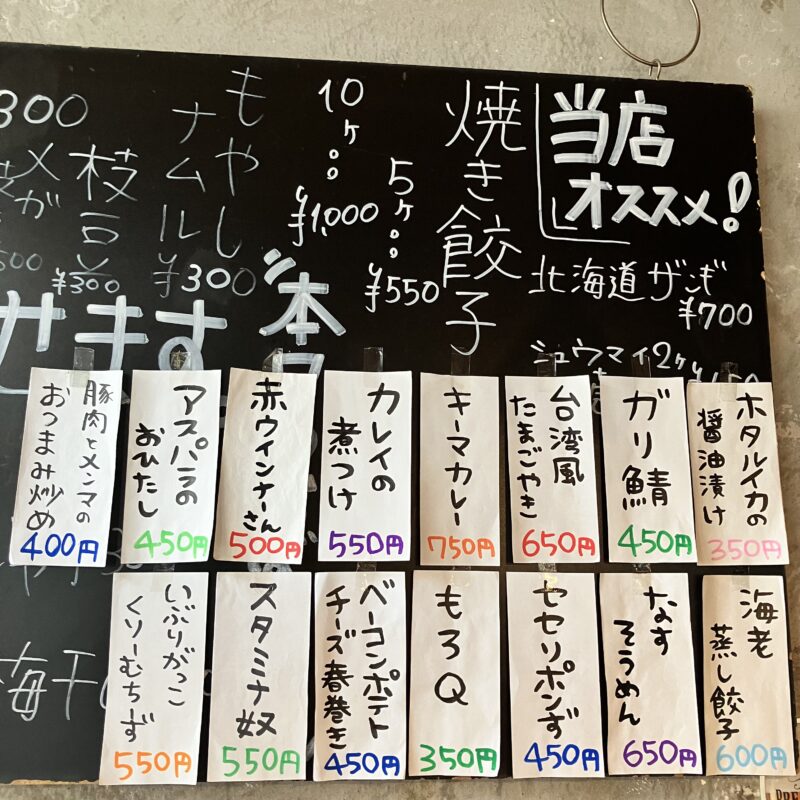 当店
オススメ!
北海道ザンギ
¥700
シュウマイ2ヶ
焼き餃子
5ヶ
¥550
10ヶ
¥1,000
もやし
ナムル
¥300
枝豆
¥300
300
メガ
せます
本
梅干
ホタルイカの
醤油漬け
350円
ガリ鯖
450円
台湾風
たまごやき
650円
キーマカレー
750円
カレイの
煮つけ
550円
赤ウインナーさん
500円
アスパラの
おひたし
450円
豚肉とメンマの
おつまみ炒め
400円
海老
蒸し餃子
600円
なす
そうめん
650円
セセリポンず
450円
もろQ
350円
ベーコンポテト
チーズ春巻き
450円
スタミナ奴
550円
いぶりがっこ
くりーむちず
550円